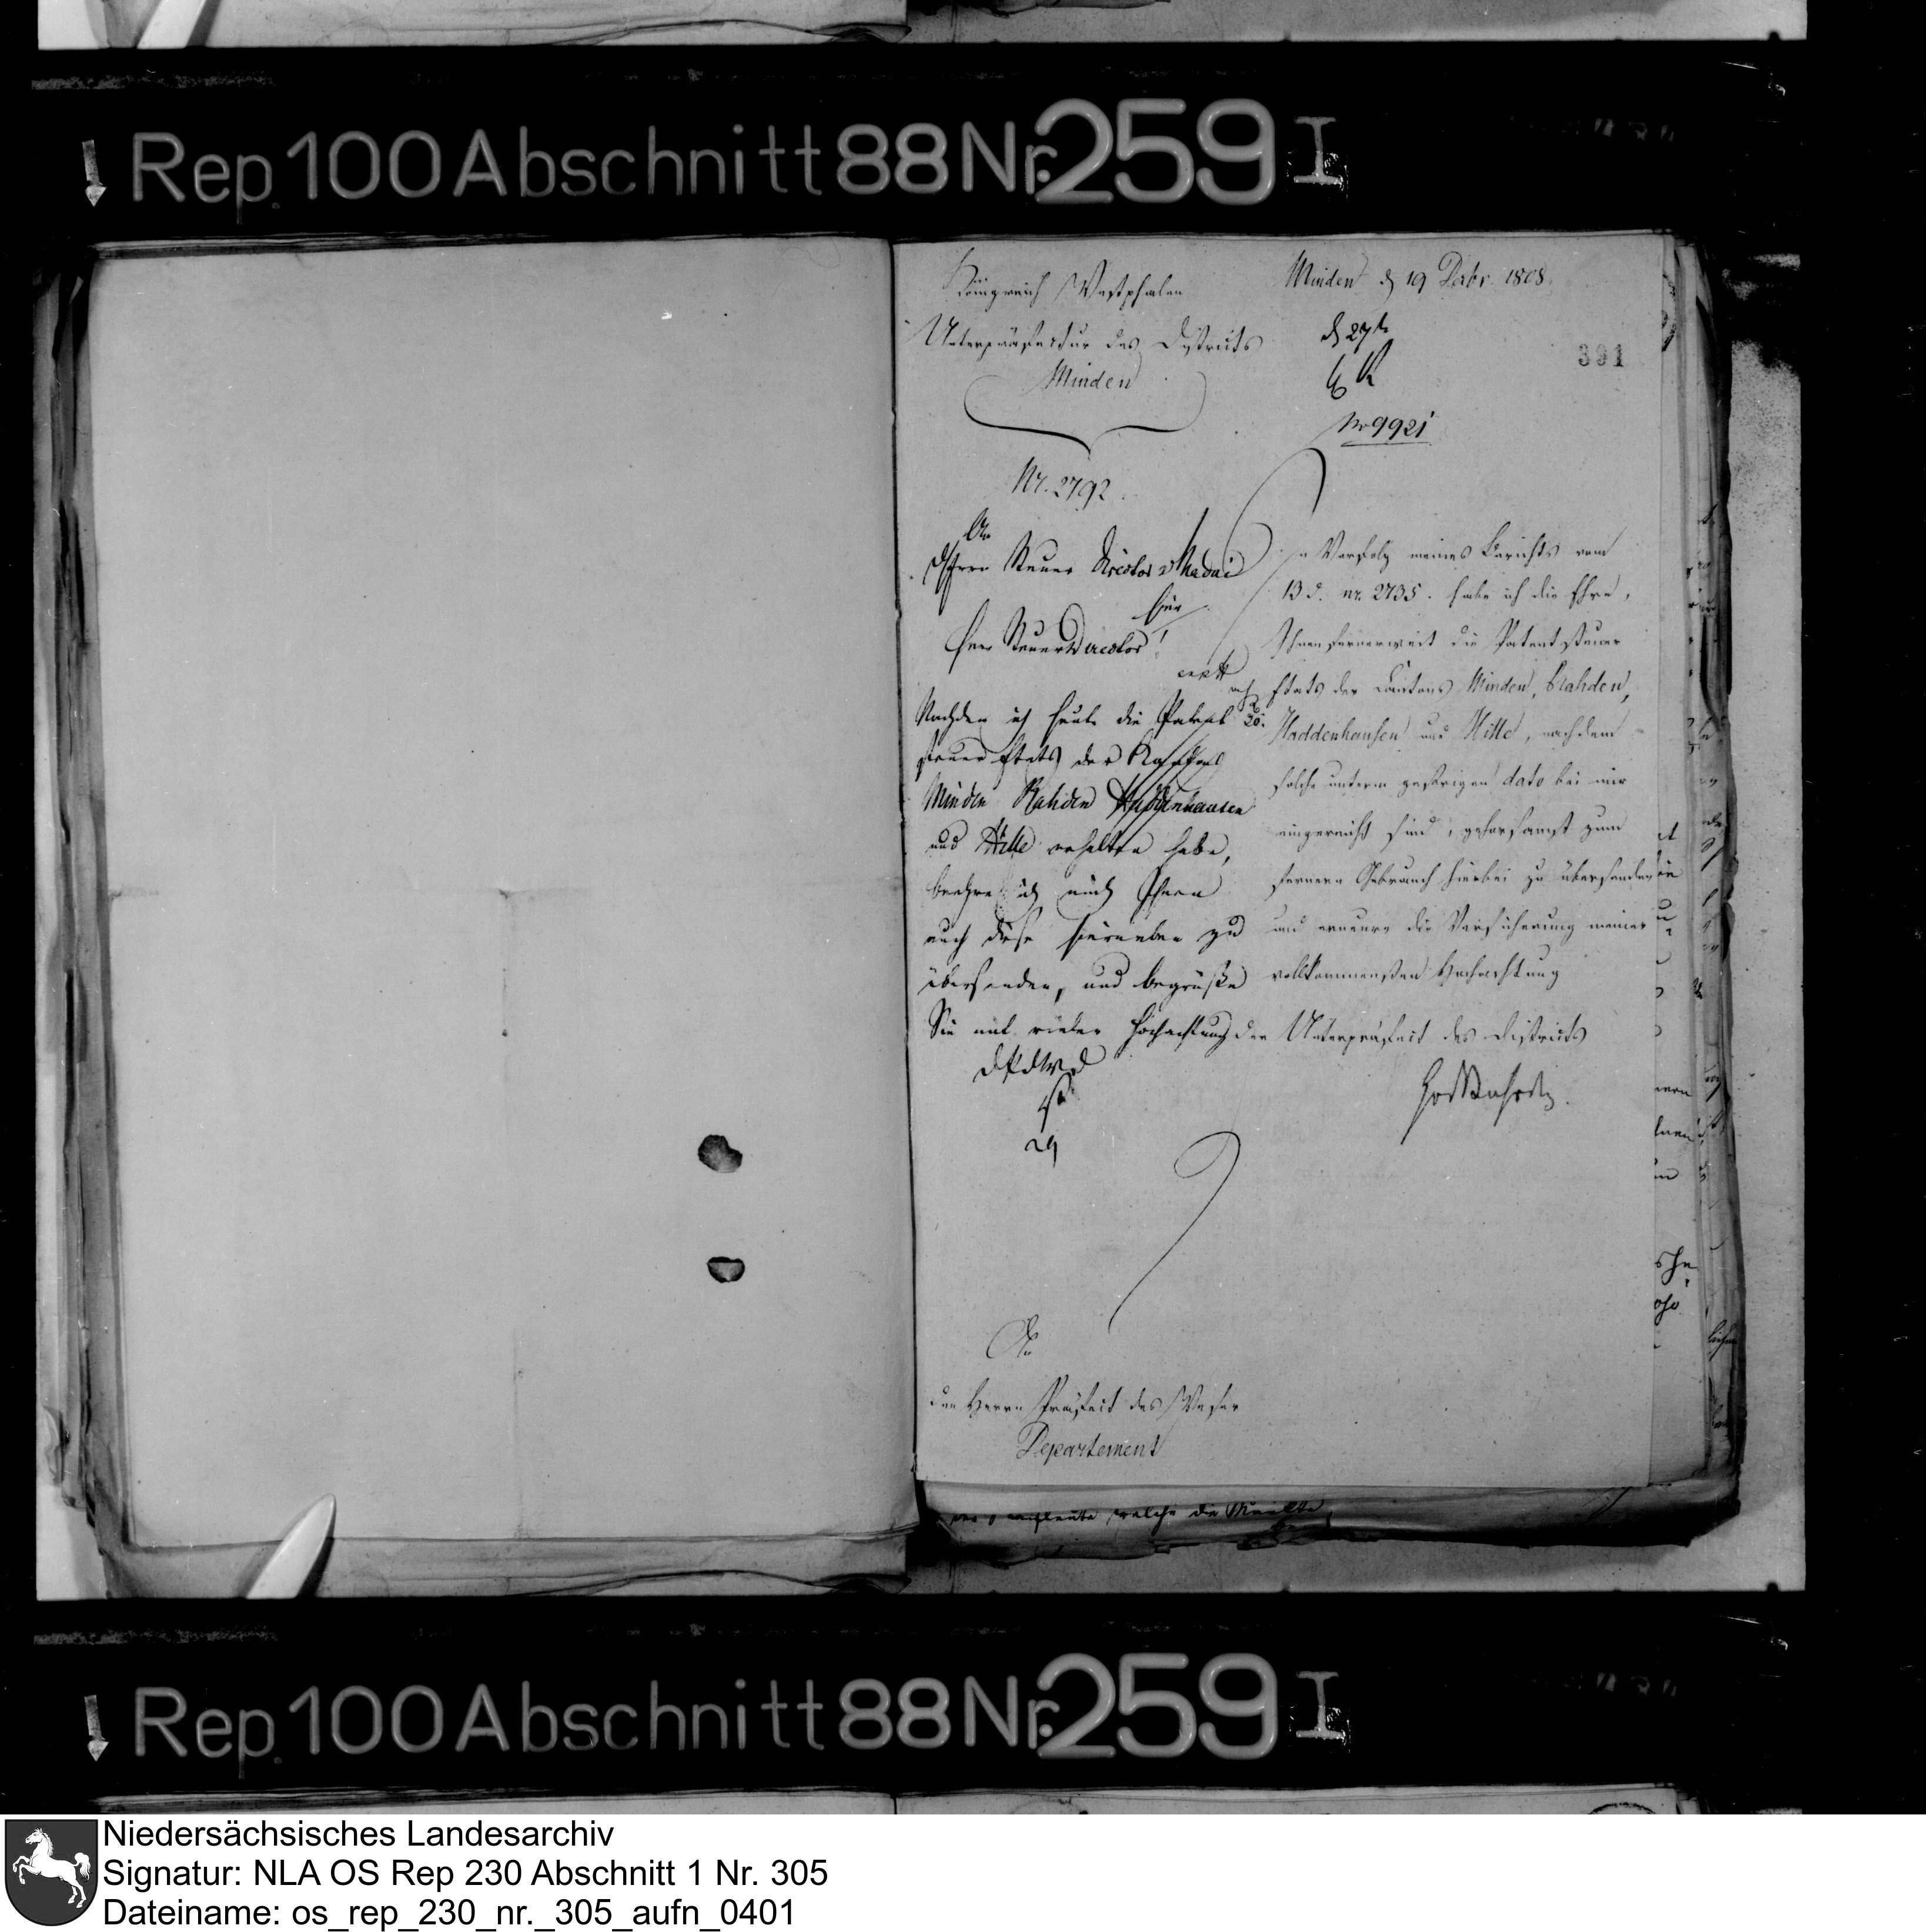 Rep. 100 Abschnitt 88 Nr. 259 I
Königreich Westphalen
Unterpräfectur des Districts
Minden
Nr. 2792.
Minden d 19 Decbr. 1808.
d 27t
No 9921
391
An
d Herrn Steuer Director v Madai
hier
Herr Steuer Director!
Nachdem ich heute die Patent
steuer Etats der Kantons
Minden Rahden Haddenhausen
und Hille erhalten habe,
beehre ich mich Ihnen
auch diese hierneben zu
übersenden, und begrüße
Sie mit vieler Hochachtung
29
In Verfolg meines Berichts vom
13 d. nr. 2735. habe ich die Ehre,
Ihnen fernerweit die Patentsteuer
Etats der Cantons Minden, Rahden,
Haddenhausen und Hille, nachdem
solche unterm gestrigen dato bei mir
eingereicht sind, gehorsamst zum
fernern Gebrauch hierbei zu übersenden
und erneure die Versicherung meiner
vollkommensten Hochachtung
der Unterpräfect des Districts
An
den Herrn Präfect des Weser
Departement
welche die
Rep. 100 Abschnitt 88 Nr. 259 I
Niedersächsisches Landesarchiv
Signatur: NLA OS Rep 230 Abschnitt 1 Nr. 305
Dateiname: os_rep_230_nr._305_aufn_0401